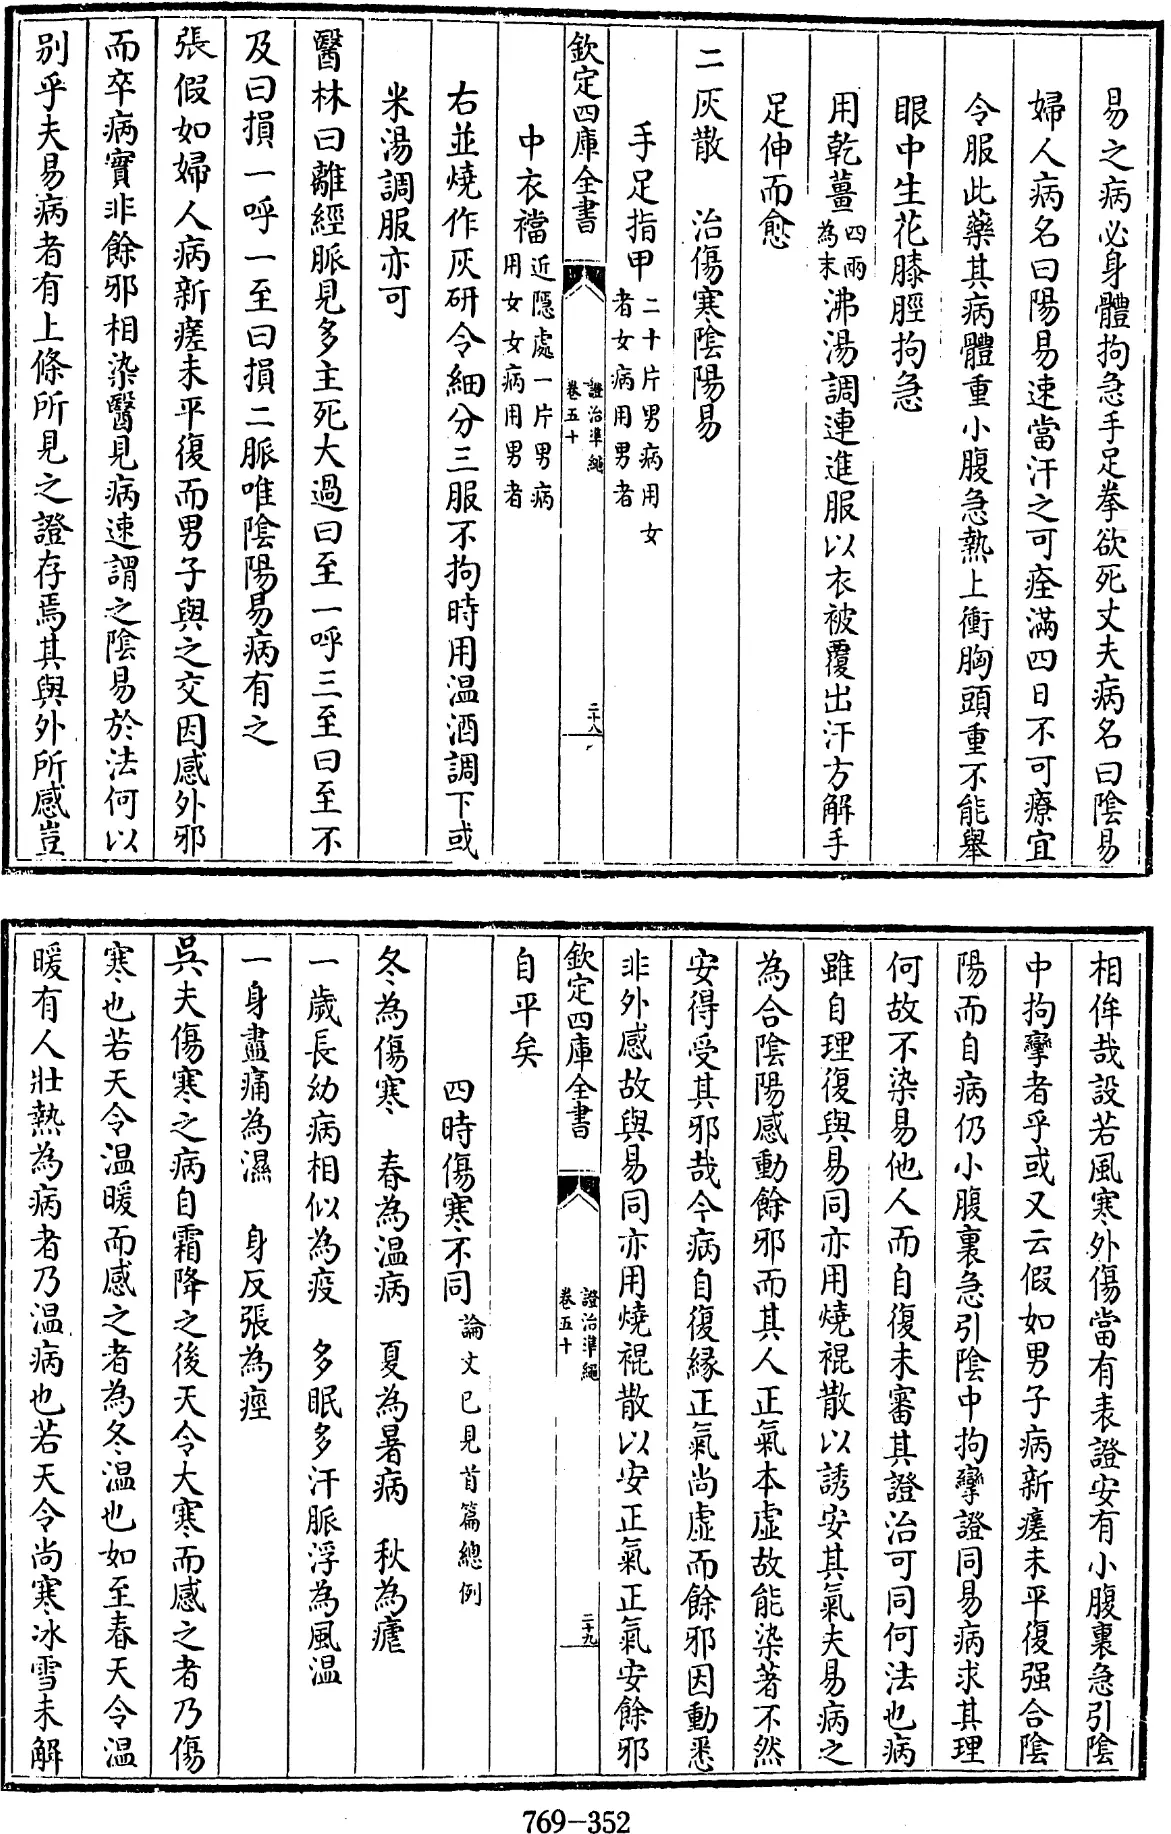 易之病必身體拘急手足拳欲死丈夫病名曰陰易
婦人病名曰陽易速當汗之可痊滿四日不可療宜
令服此藥其病體重小腹急熱上衝胸頭重不能舉
眼中生花膝脛拘急
用乾薑四兩為末沸湯調連進服以衣被覆出汗方解手
足伸而愈
二灰散　治傷寒陰陽易
手足指甲二十片男病用女者女病用男者
欽定四庫全書　證治準繩卷五十　二十八
中衣襠近隱處一片男病用女女病用男者
右並燒作灰研令細分三服不拘時用温酒調下或
米湯調服亦可
醫林曰離經脈見多主死大過曰至一呼三至曰至不
及曰損一呼一至曰損二脈唯陰陽易病有之
張假如婦人病新瘥未平復而男子與之交因感外邪
而卒病實非餘邪相染醫見病速謂之陰易於法何以
别乎夫易病者有上條所見之證存焉其與外所感豈
相侔哉設若風寒外傷當有表證安有小腹裏急引陰
中拘攣者乎或又云假如男子病新瘥未平復强合陰
陽而自病仍小腹裏急引陰中拘攣證同易病求其理
何故不染易他人而自復未審其證治可同何法也病
雖自理復與易同亦用燒裩散以誘安其氣夫易病之
為合陰陽感動餘邪而其人正氣本虛故能染著不然
安得受其邪哉今病自復緣正氣尚虛而餘邪因動悉
非外感故與易同亦用燒裩散以安正氣正氣安餘邪
欽定四庫全書　證治準繩卷五十　二十九
自平矣
四時傷寒不同論文已見首篇總例
冬為傷寒　春為温病　夏為暑病　秋為瘧
一歲長幼病相似為疫　多眠多汗脈浮為風温
一身盡痛為濕　身反張為痙
吳夫傷寒之病自霜降之後天令大寒而感之者乃傷
寒也若天令温暖而感之者為冬温也如至春天令温
暖有人壯熱為病者乃温病也若天令尚寒冰雪未解
769-352